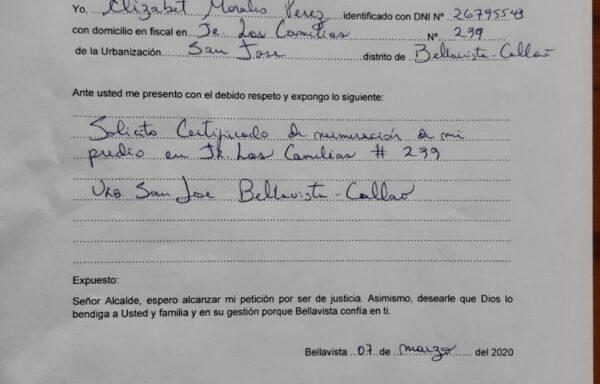 Yo, Elizabet Morales Perez identificado con DNI Nº 26795549
con domicilio en fiscal en Jr. Las Camilias Nº 299
de la Urbanización San Jose distrito de Bellavista-Callao
Ante usted me presento con el debido respeto y expongo lo siguiente:
Solicito Certificado de numeración de mi
predio en Jr. Las Camilias # 299
Urb. San Jose Bellavista-Callao
Expuesto:
Señor Alcalde, espero alcanzar mi petición por ser de justicia. Asimismo, desearle que Dios lo
bendiga a Usted y familia y en su gestión porque Bellavista confía en ti.
Bellavista 07 de marzo del 2020